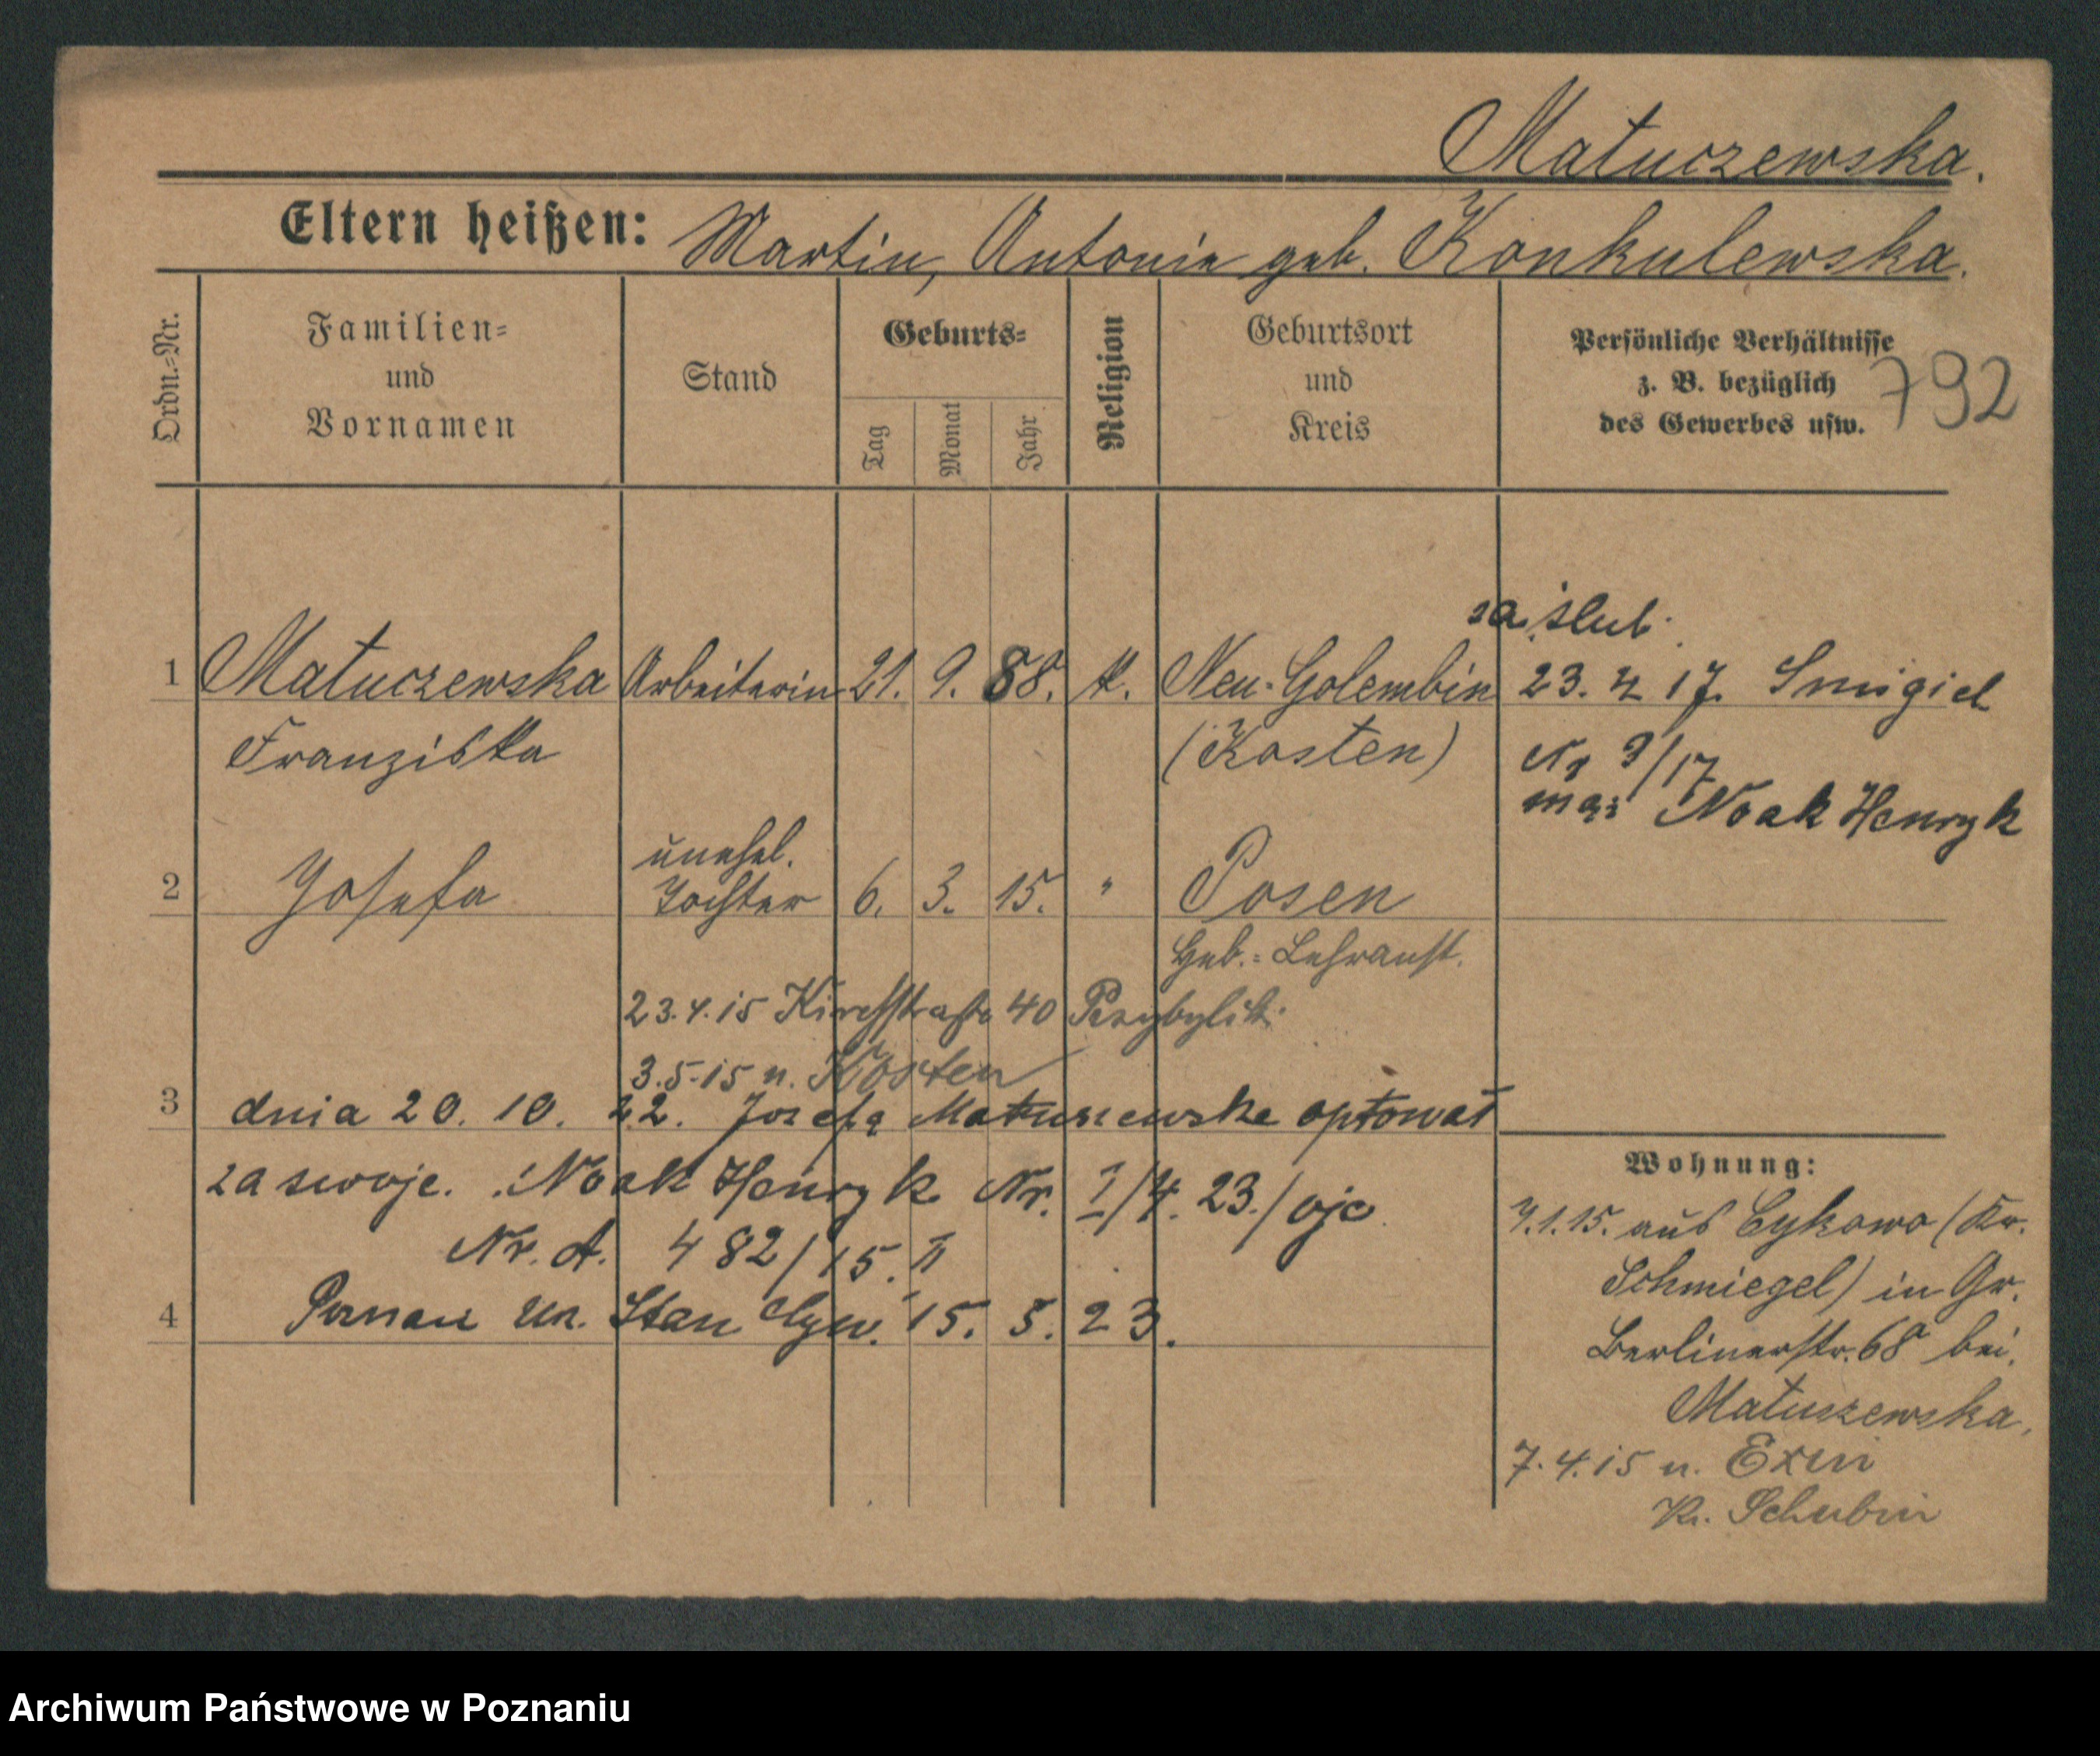 Matuczewska.
Eltern heißen: Martin, Antonie geb. Konkulewska.
Ordn.-Nr.
Familien-
und
Vornamen
Stand
Geburts-
Tag
Monat
Jahr
Religion
Geburtsort
und
Kreis
Persönliche Verhältnisse
z. B. bezüglich
des Gewerbes usw.
792
zaślub.
1 Matuczewska Arbeiterin 21. 9. 88. k. Neu-Golembin 23. 4 17. Smigiel
Franziska (Kosten) Nr 9/17
mąż Noak Henryk
unehel.
2 Josefa Tochter 6. 3. 15. " Posen
Heb.-Lehranst.
23.4.15 Kirchstraße 40
3.5.15 n. Kosten
3 dnia 20. 10. 22. Josefą Matuszewska optował
za swoje. Noak Henryk Nr. I/4. 23./
Nr. A. 482/15. II
4 Poznań Urz. Stan Cyw. 15. 5. 23.
Wohnung:
7.1.15. aus Cykowo (Kr.
Schmiegel) in Gr.
Berlinerstr. 68 bei
Matuszewska.
7.4.15 n. Exin
Kr. Schubin
Archiwum Państwowe w Poznaniu